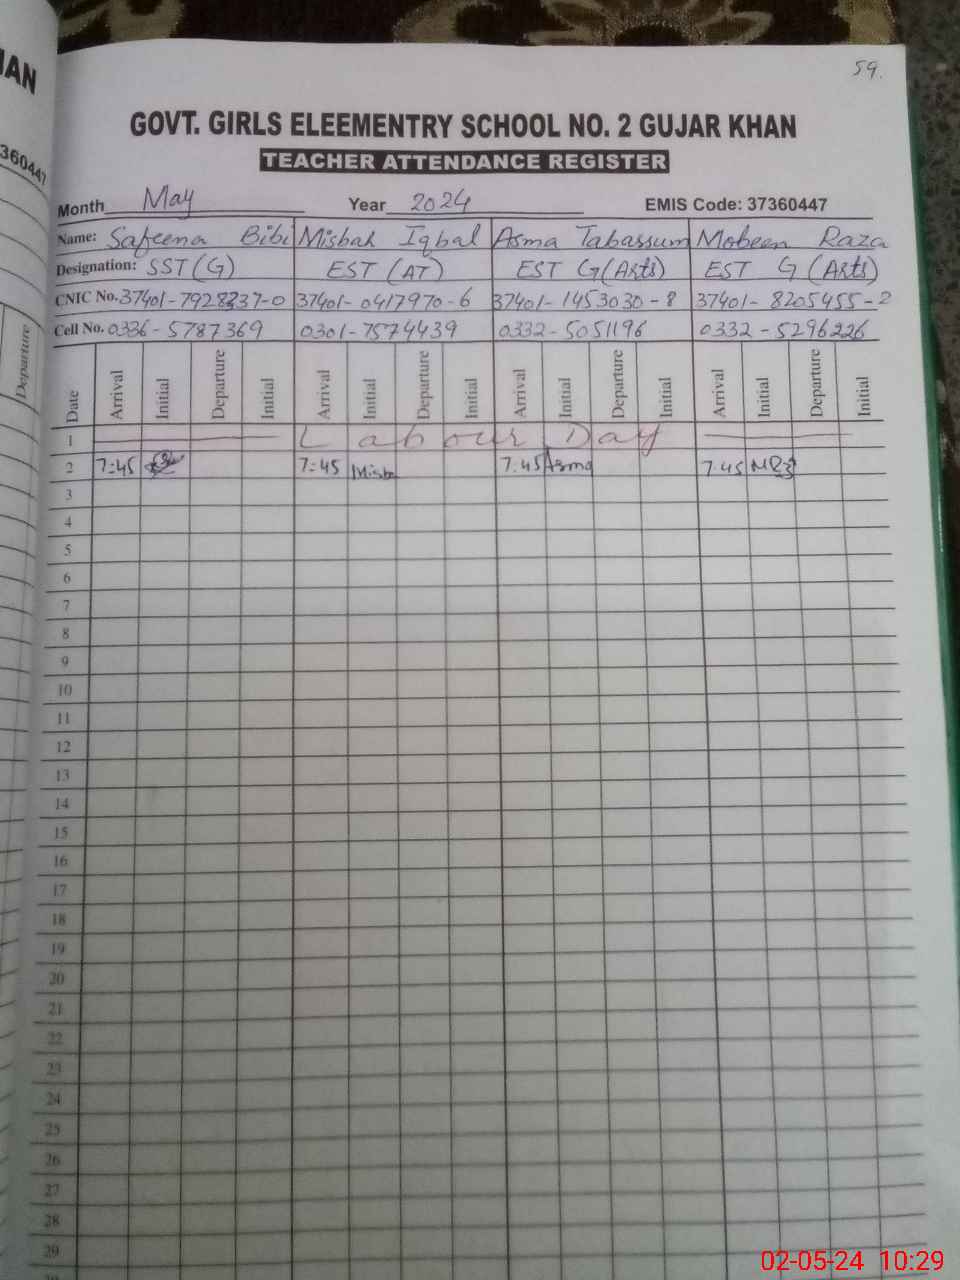 59.
GOVT. GIRLS ELEEMENTRY SCHOOL NO. 2 GUJAR KHAN
TEACHER ATTENDANCE REGISTER
Month May Year 2024 EMIS Code: 37360447
Name: Safeena Bibi Misbah Iqbal Asma Tabassum Mobeen Raza
Designation: SST (G) EST (AT) EST G (Arts) EST G (Arts)
CNIC No. 37401-7928237-0 37401-0417970-6 37401-1453030-8 37401-8205455-2
Cell No. 0336-5787369 0301-7574439 0332-5051196 0332-5296226
Date Arrival Initial Departure Initial Arrival Initial Departure Initial Arrival Initial Departure Initial Arrival Initial Departure Initial
1 Labour Day
2 7:45 7:45 Misba 7:45 Asma 7:45
3
4
5
6
7
8
9
10
11
12
13
14
15
16
17
18
19
20
21
22
23
24
25
26
27
28
29
HAN
360447
Departure
02-05-24 10:29